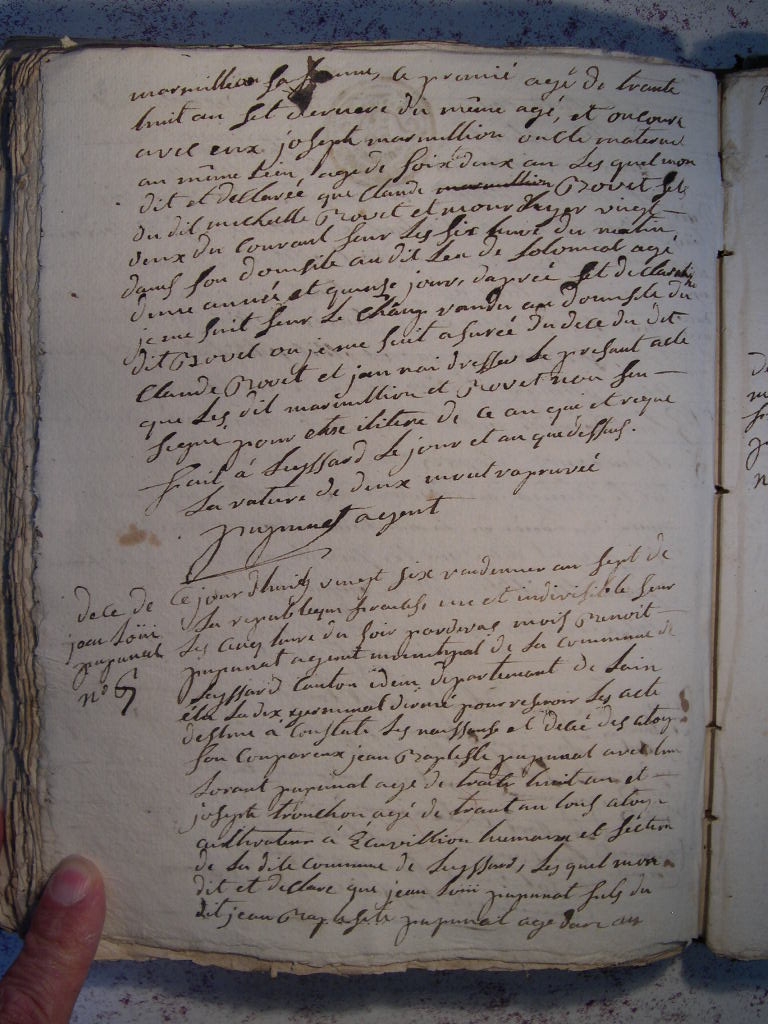 marmillion sa femme, le premié agé de trante
huit an set derniere du même agé, et oncore
avec eux joseph marmillion oncle maternel
au même lien, agé de soix deux an les quel mon
dit et declaréé que Claude marmillion Bovet fils
du dit michelle Bovet et mour hyer vingt
deux du courant sur les six hure du matin
dans son domsile au dit lieu de Solomiat agé
dune année et quense jours, daprée set declaration
je me suit seur le Chanp randu au domsile du
dit Bovet ou je me suit asuréé du dece du dit
Claude Bovet et jan nai dresser le presant acte
que les dit marmillion et Bovet non seu
signé pour estre ilitere de ce au qui et reque
fait à Leyssard le jour et an que dessus.
La rature de deux mout rapruvéé
pupunat agent
dece de
jean Loüi
pupunat
n° 6
Ce jourdhuit vingt six vandemer an sept de
La republique francaise une et indivisible seur
les cinq hure du soir pardevas mois Benoit
pupunat agent municipal de la commune de
Leyssard Canton idem departemant de Lain
élu La dix germinal dernié pour resevoir les acte
destine à Constate les naissanse et decéé des citoy
son Conpareux jean Baptiste pupunat avec
Lorant pupunat agé de trante huit an et
joseph tronchon agé de trant an tous citoyen
cultivateur à hamaux et section
de La dite commune de Leyssard, les quel mon
dit et declare que jean Loüi pupunat fils du
dit jean Baptiste pupunat age dun an